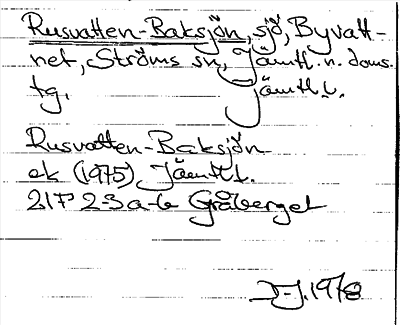 Rusvatten-Baksjön, sjö, Byvatt-
net, Ströms sn, Jämtl. n. doms.
tg. Jämtl. l.
Rusvatten-Baksjön
ek (1975) Jämtl l.
21F 2-3 a-b Gråberget
D-J. 1978